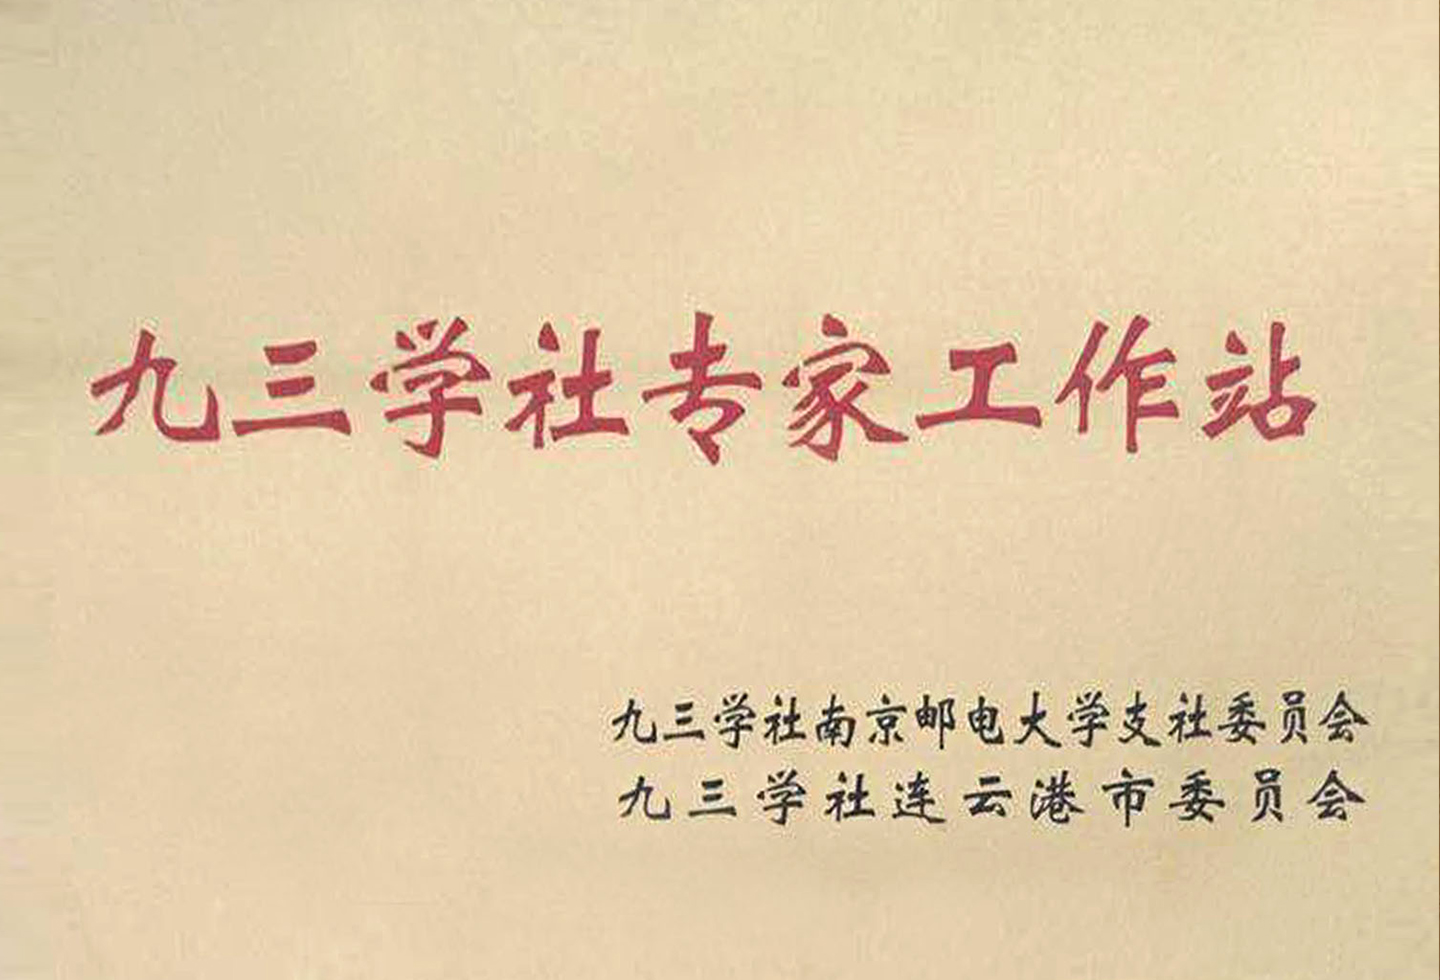 九三学社专家工作站
九三学社南京邮电大学支社委员会
九三学社连云港市委员会